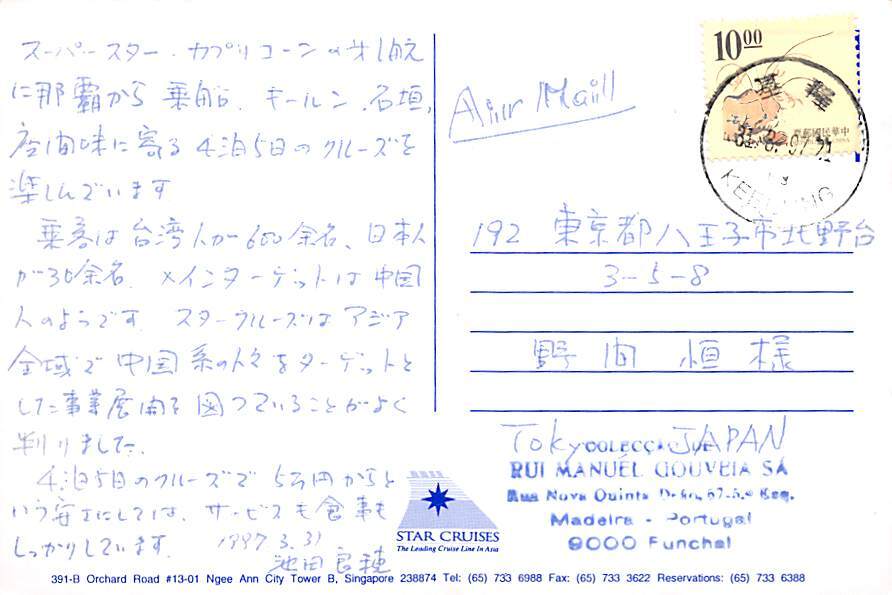 スーパースター・カプリコーンの才1航
に那覇から乗船。キールン、石垣、
座間味に寄る4泊5日のクルーズを
楽しんでいます
乗客は台湾人が600余名、日本人
が30余名。メインターゲットは中国
人のようです。スタークルーズはアジア
全域で中国系の人々をターゲットと
した事業展開を図っていることがよく
判りました。
4泊5日のクルーズで5万円からと
いう安さにしては、サービスも食事も
しっかりしています。 1997 3.31
池田良穂
STAR CRUISES
The Leading Cruise Line In Asia
Air Mail
10 00
中華民國郵票
基隆
31. 97.
KEELUNG
192 東京都八王子市北野台
3-5-8
野間恒様
Tokyo JAPAN
COLECÇÃO DE
RUI MANUEL GOUVEIA SÁ
Rua Nova Quinta 67-5.º Esq.
Madeira - Portugal
9000 Funchal
391-B Orchard Road #13-01 Ngee Ann City Tower B, Singapore 238874 Tel: (65) 733 6988 Fax: (65) 733 3622 Reservations: (65) 733 6388